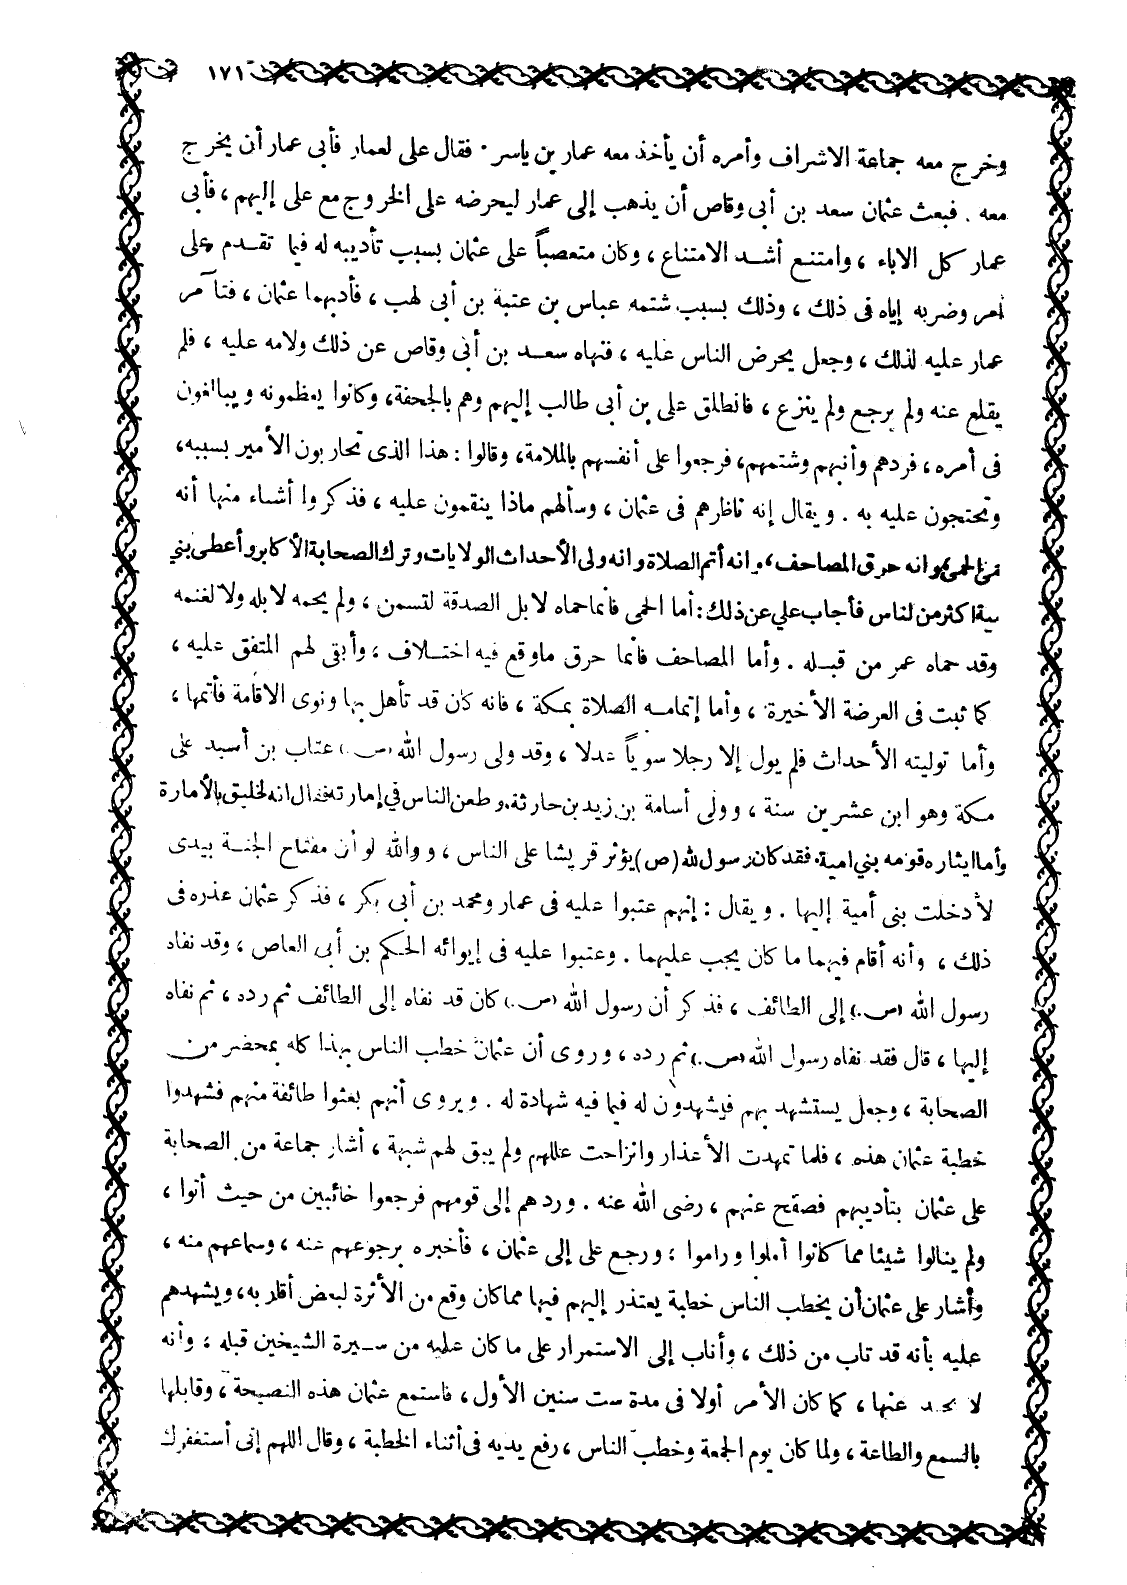 ١٧١
وخرج معه جماعة الاشراف وأمره أن يأخذ معه عمار بن ياسر . فقال على لعمار فأبى عمار أن يخرج
معه . فبعث عثمان سعد بن أبى وقاص أن يذهب إلى عمار ليحرضه على الخروج مع على إليهم ، فأبى
عمار كل الاباء ، وامتنع أشد الامتناع ، وكان متعصباً على عثمان بسبب تأديبه له فيما تقدم على
أمر وضربه إياه فى ذلك ، وذلك بسبب شتمه عباس بن عتبة بن أبى لهب ، فأدبهما عثمان ، فتآمر
عمار عليه لذلك ، وجعل يحرض الناس عليه ، فنهاه سعد بن أبى وقاص عن ذلك ولامه عليه ، فلم
يقلع عنه ولم يرجع ولم ينزع ، فانطلق على بن أبى طالب إليهم وهم بالجحفة، وكانوا يعظمونه ويبالغون
فى أمره ، فردهم وأنبهم وشتمهم، فرجعوا على أنفسهم بالملامة، وقالوا : هذا الذى تحاربون الأمير بسببه،
وتحتجون عليه به . ويقال إنه ناظرهم فى عثمان ، وسألهم ماذا ينقمون عليه ، فذكروا أشياء منها أنه
الحمى وانه حرق المصاحف ، وانه أتم الصلاة وانه ولى الأحداث الولايات وترك الصحابة الأكابر وأعطى بني
أكثر من الناس فأجاب علي عن ذلك : أما الحمى فانما حماه لابل الصدقة لتسمن ، ولم يحمه لابله ولا لغنمه
وقد حماه عمر من قبله . وأما المصاحف فانما حرق ماوقع فيه اختلاف ، وأبقى لهم المتفق عليه ،
كما ثبت فى العرضة الأخيرة ، وأما إتمامه الصلاة بمكة ، فانه كان قد تأهل بها ونوى الاقامة فأتمها ،
وأما توليته الأحداث فلم يول إلا رجلا سوياً عدلا ، وقد ولى رسول الله (ص.) عتاب بن أسيد على
مكة وهو ابن عشرين سنة ، وولى أسامة بن زيد بن حارثة، وطعن الناس في إمارته فقال انه لخليق بالأمارة
وأما ايثاره قومه بني امية. فقد كان رسول لله (ص) يؤثر قريشا على الناس ، ووالله لو أن مفتاح الجنة بيدى
لأدخلت بنى أمية إليها . ويقال : إنهم عتبوا عليه فى عمار ومحمد بن أبى بكر ، فذكر عثمان عذره فى
ذلك ، وأنه أقام فيهما ما كان يجب عليهما . وعتبوا عليه فى إيوائه الحكم بن أبى العاص ، وقد نفاه
رسول الله (ص.) إلى الطائف ، فذكر أن رسول الله (ص.) كان قد نفاه إلى الطائف ثم رده ، ثم نفاه
إليها ، قال فقد نفاه رسول الله (ص.) ثم رده ، وروى أن عثمان خطب الناس بهذا كله بمحضر من
الصحابة ، وجعل يستشهد بهم فيشهدون له فيما فيه شهادة له . ويروى أنهم بعثوا طائفة منهم فشهدوا
خطبة عثمان هذه ، فلما تمهدت الأعذار وانزاحت عللهم ولم يبق لهم شبهة ، أشار جماعة من الصحابة
على عثمان بتأديبهم فصفح عنهم ، رضى الله عنه . وردهم إلى قومهم فرجعوا خائبين من حيث أتوا ،
ولم ينالوا شيئا مما كانوا أملوا وراموا ، ورجع على إلى عثمان ، فأخبره برجوعهم عنه ، وسماعهم منه ،
وأشار على عثمان أن يخطب الناس خطبة يعتذر إليهم فيها مما كان وقع من الأثرة لبعض أقاربه، ويشهدهم
عليه بأنه قد تاب من ذلك ، وأناب إلى الاستمرار على ما كان عليه من سيرة الشيخين قبله ، وأنه
لا يحد عنها ، كما كان الأمر أولا فى مدة ست سنين الأول ، فاستمع عثمان هذه النصيحة ، وقابلها
بالسمع والطاعة ، ولما كان يوم الجمعة وخطب الناس ، رفع يديه فى أثناء الخطبة ، وقال اللهم إنى أستغفرك